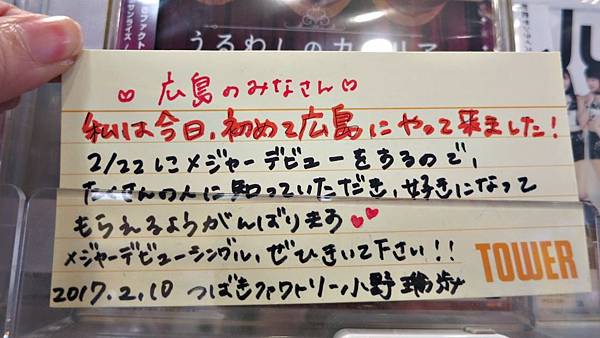 うるわしのカメリア
♡ 広島のみなさん♡
私は今日、初めて広島にやって来ました!
2/22にメジャーデビューをするので、
たくさんの人に知っていただき、好きになって
もらえるようがんばります♥♥
メジャーデビューシングル、ぜひきいて下さい!!
TOWER
2017.2.10 つばきファクトリー小野瑞歩